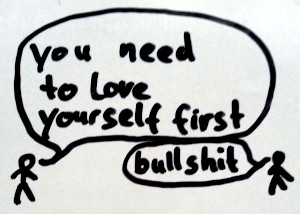 you need
to love
yourself first
bullshit